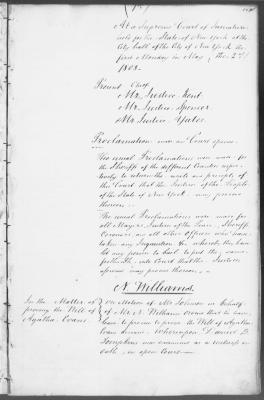 At a Supreme Court of Judicature
held for the State of New York at the
City hall of the City of New York the
first Monday in May, the 2d
1808.
Present Chief
Mr. Justice Kent
Mr. Justice Spencer
Mr. Justice Yates
Proclamation was as Court opens.
The usual Proclamations were made for
the Sheriffs of the different Counties
to return the writs and precepts of
this Court that the Justices of the People
of the State of New York may proceed
thereon.
The usual Proclamations were made for
all Mayors Justices of the Peace, Sheriffs
Coroners, and all other Officers who have
taken any Inquisition
let any person
Court that the Justices
may proceed thereon.
N. Williams.
In the Matter of
proving the Will of
Agatha Evans.
On Motion of Mr Johnson in behalf
of Mr N. Williams
leave to proceed to prove the Will of Agatha
Evans Whereupon Daniel D.
Tompkins was examined as a witness on
oath, in open Court